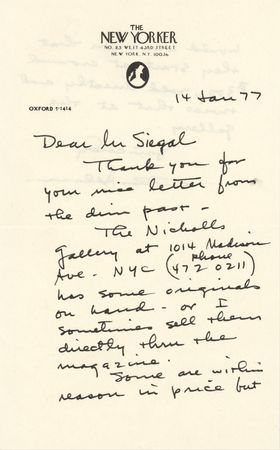 THE
NEW YORKER
NO. 25 WEST 43RD STREET
NEW YORK, N.Y. 10036
OXFORD 5-1414
14 Jan 77
Dear Mr Siegal
Thank you for
your nice letter from
the dim past -
The Nicholls
Gallery at 1014 Madison
Ave - NYC (phone 472 0211)
has some originals
on hand - or I
sometimes sell them
directly thru the
magazine.
Some are within
reason in price but